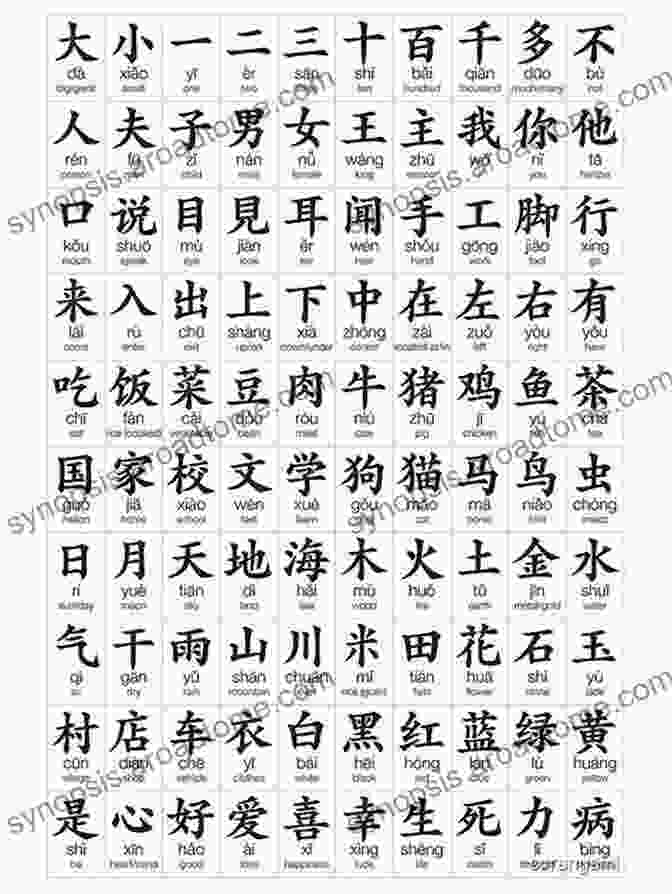 大 小 一 二 三 十 百 千 多 不
dà xiǎo yī èr sān shí bǎi qiān duō bù
big/great small one two three ten hundred thousand much/many not
人 夫 子 男 女 王 主 我 你 他
rén fū zǐ nán nǚ wáng zhǔ wǒ nǐ tā
person child male female king you he/she
口 说 目 見 耳 闻 手 工 脚 行
kǒu shuō mù jiàn ěr wén shǒu gōng jiǎo xíng
mouth speak eye look ear hear hand work foot go
来 入 出 上 下 中 在 左 右 有
lái rù chū shàng xià zhōng zài zuǒ yòu yǒu
come enter exit up/on down/under center left right have
吃 饭 菜 豆 肉 牛 猪 鸡 鱼 茶
chī fàn cài dòu ròu niú zhū jī yú chá
eat rice (cooked) vegetable bean meat cow pig chicken fish tea
国 家 校 文 学 狗 猫 马 鸟 虫
guó jiā xiào wén xué gǒu māo mǎ niǎo chóng
nation home school text learn dog cat horse bird insect
日 月 天 地 海 木 火 土 金 水
rì yuè tiān dì hǎi mù huǒ tǔ jīn shuǐ
sun/day moon sky land sea wood fire earth metal/gold water
气 干 雨 山 川 米 田 花 石 玉
qì gān yǔ shān chuān mǐ tián huā shí yù
air dry rain mountain river rice (grain) field flower stone jade
村 店 车 衣 白 黑 红 蓝 绿 黄
cūn diàn chē yī bái hēi hóng lán lǜ huáng
village shop vehicle clothes white black red blue green yellow
是 心 好 爱 喜 幸 生 死 力 病
shì xīn hǎo ài xǐ xìng shēng sǐ lì bìng
be heart/mind good love happiness luck life death
synopsis.aroadtome.com
synopsis.aroadtome.com
synopsis.aroadtome.com
synopsis.aroadtome.com
synopsis.aroadtome.com
synopsis.aroadtome.com